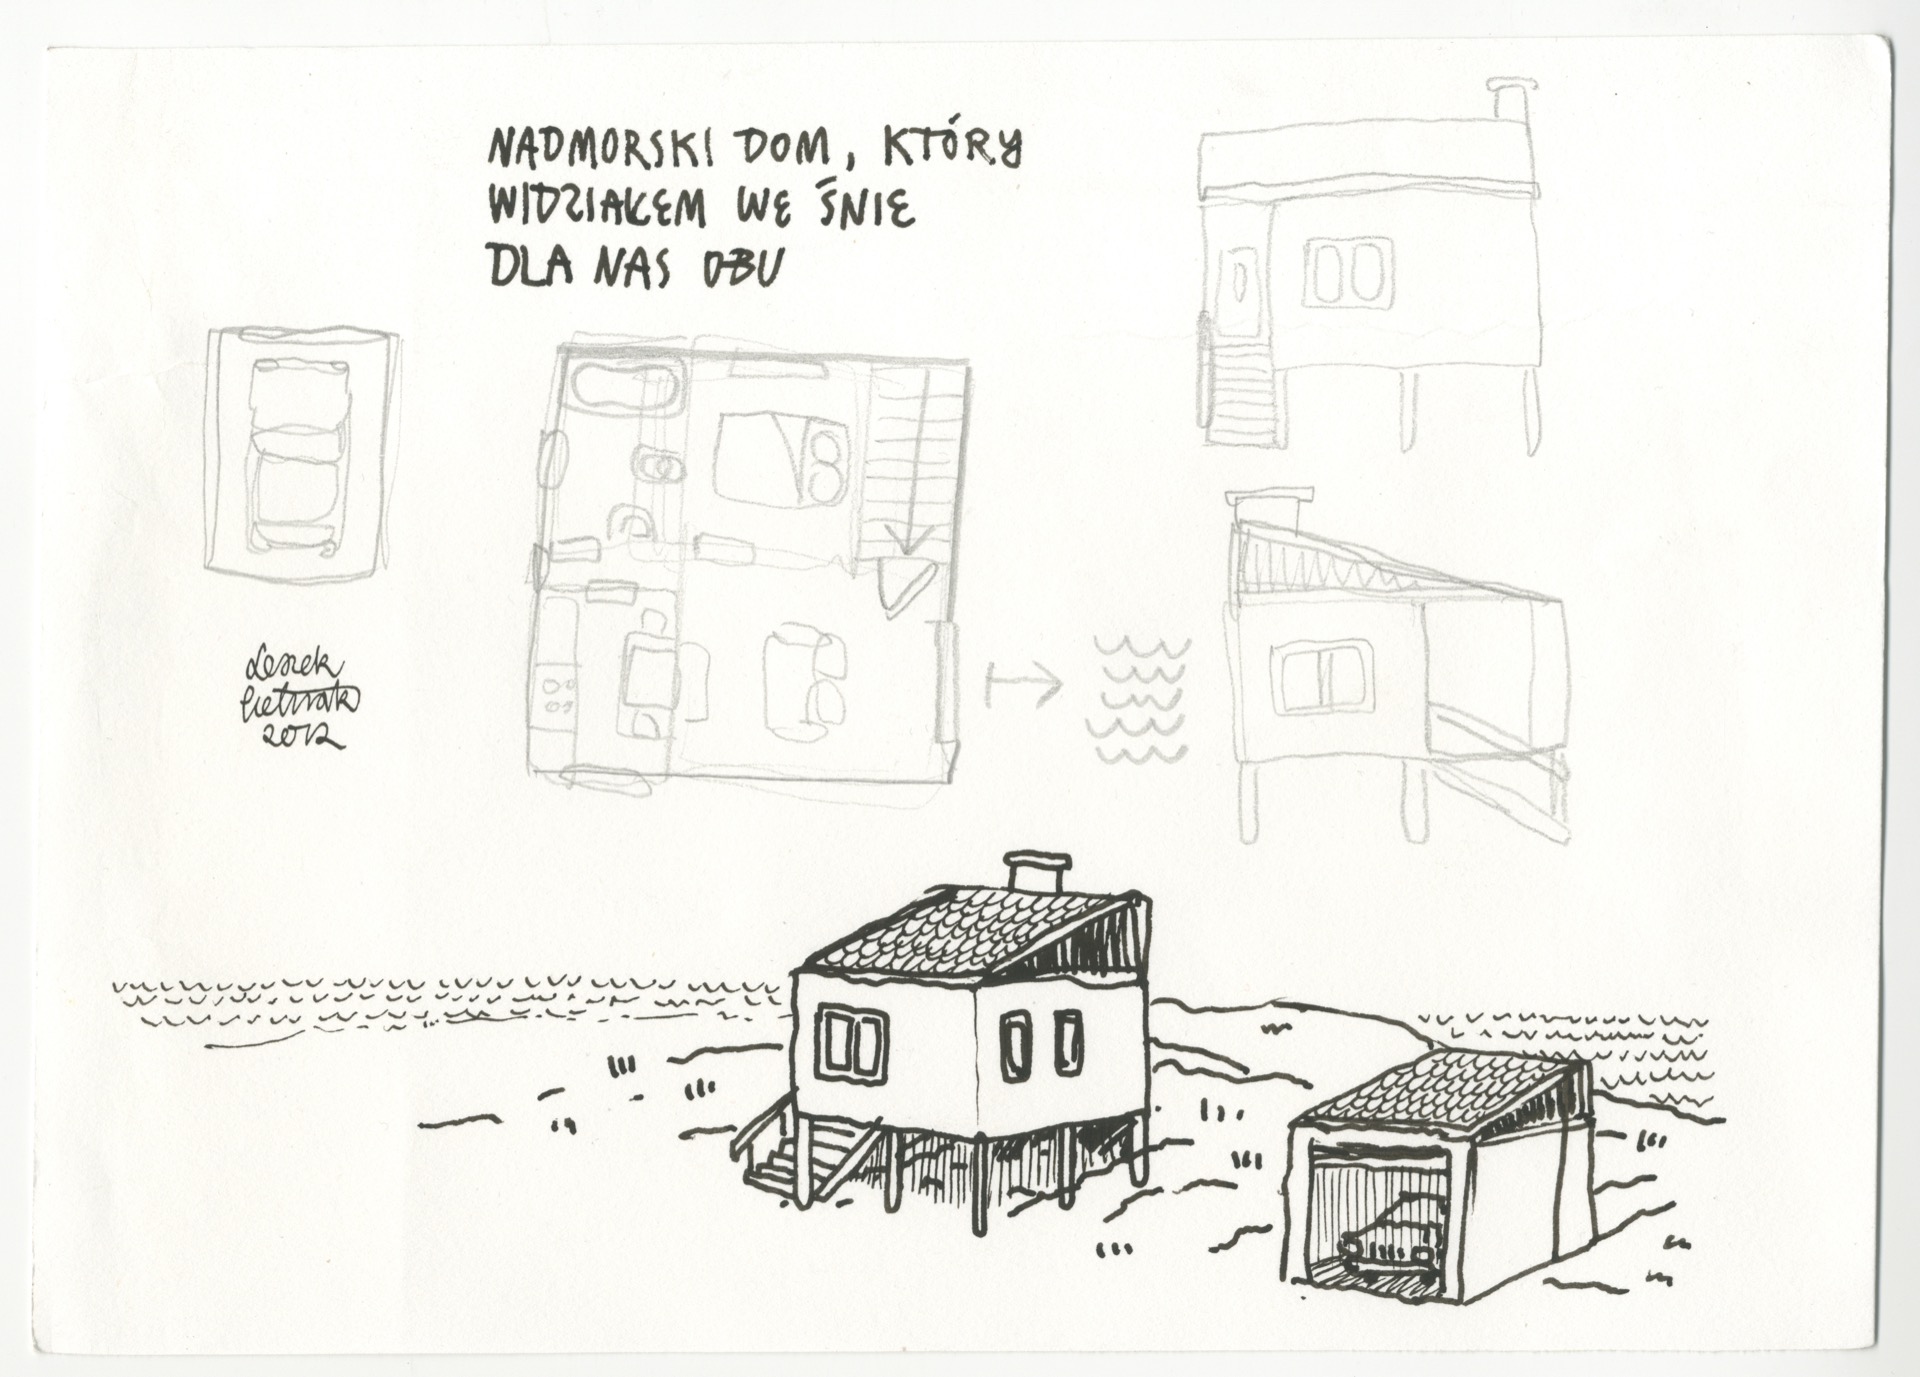 NADMORSKI DOM, KTÓRY
WIDZIAŁEM WE ŚNIE
DLA NAS OBU
Leszek
Pietrzak
2012